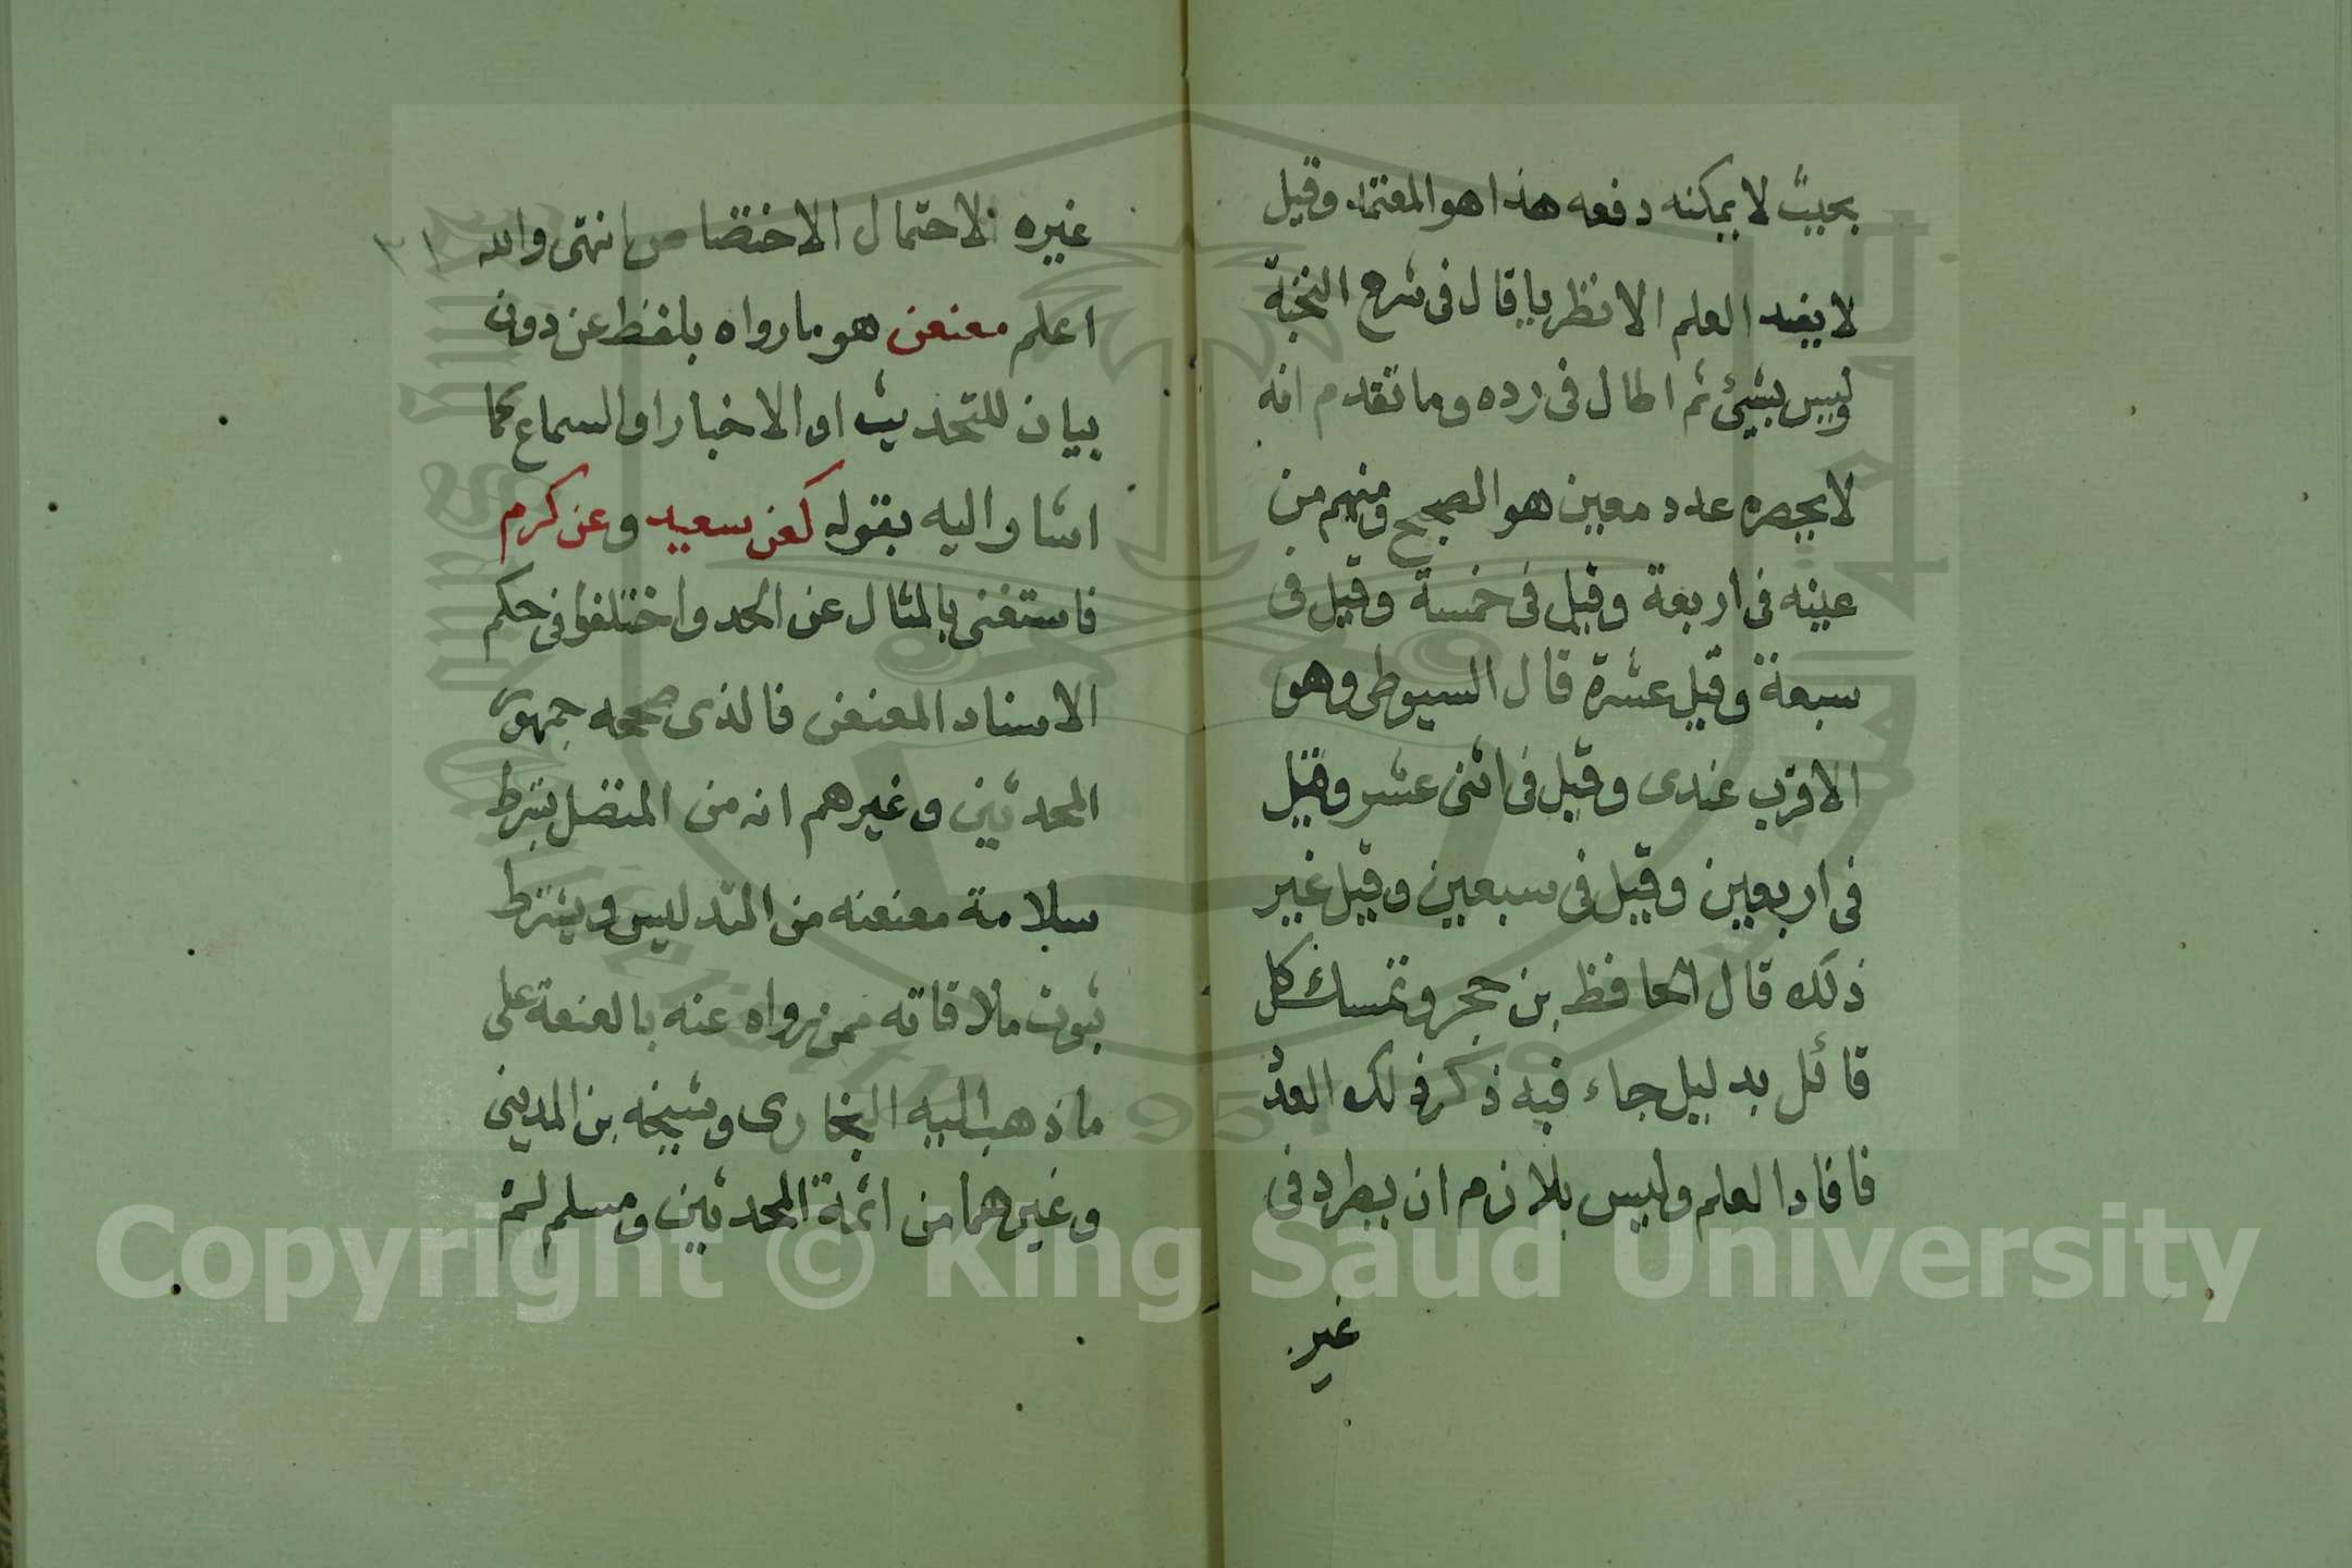 بحيث لا يمكنه دفعه هذا هو المعتمد وقيل
لا يفيد العلم الا نظريا قال فى شرح النخبة
وليس بشيئ ثم اطال فى رده وما تقدم انه
لا يحصره عدد معين هو الصحيح ومنهم من
عينه فى اربعة وقيل فى خمسة وقيل فى
سبعة وقيل عشرة قال السيوطى وهو
الاقرب عندى وقيل فى اثنى عشر وقيل
فى اربعين وقيل فى سبعين وقيل غير
ذلك قال الحافظ بن حجر وتمسك كل
قائل بدليل جاء فيه ذكر ذلك العدد
فافاد العلم وليس بلازم ان يطرد فى
غير
غيره لاحتمال الاختصاص انتهى والله
اعلم معنعن هو ما رواه بلفظ عن دون
بيان للتحديث او الاخبار او السماع كما
اشار اليه بقوله كعن سعيد وعن كرم
فاستغنى بالمثال عن الحد واختلفوا فى حكم
الاسناد المعنعن فالذى صححه جمهور
المحدثين وغيرهم انه من المتصل بشرط
سلامة معنعنه من التدليس ويشترط
ثبوت ملاقاته ممن رواه عنه بالعنعة على
ما ذهب اليه البخارى وشيخه بن المدينى
وغيرهما من ائمة المحدثين ومسلم لم
Copyright © King Saud University